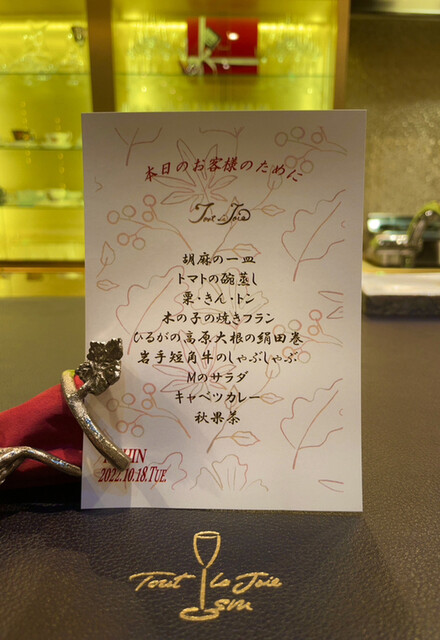 本日のお客様のために
Tout La Joie
胡麻の一皿
トマトの碗蒸し
栗・きん・トン
木の子の焼きフラン
ひるがの高原大根の絹田巻
岩手短角牛のしゃぶしゃぶ
Mのサラダ
キャベツカレー
秋果茶
HIN
2022.10.18.TUE
Tout La Joie